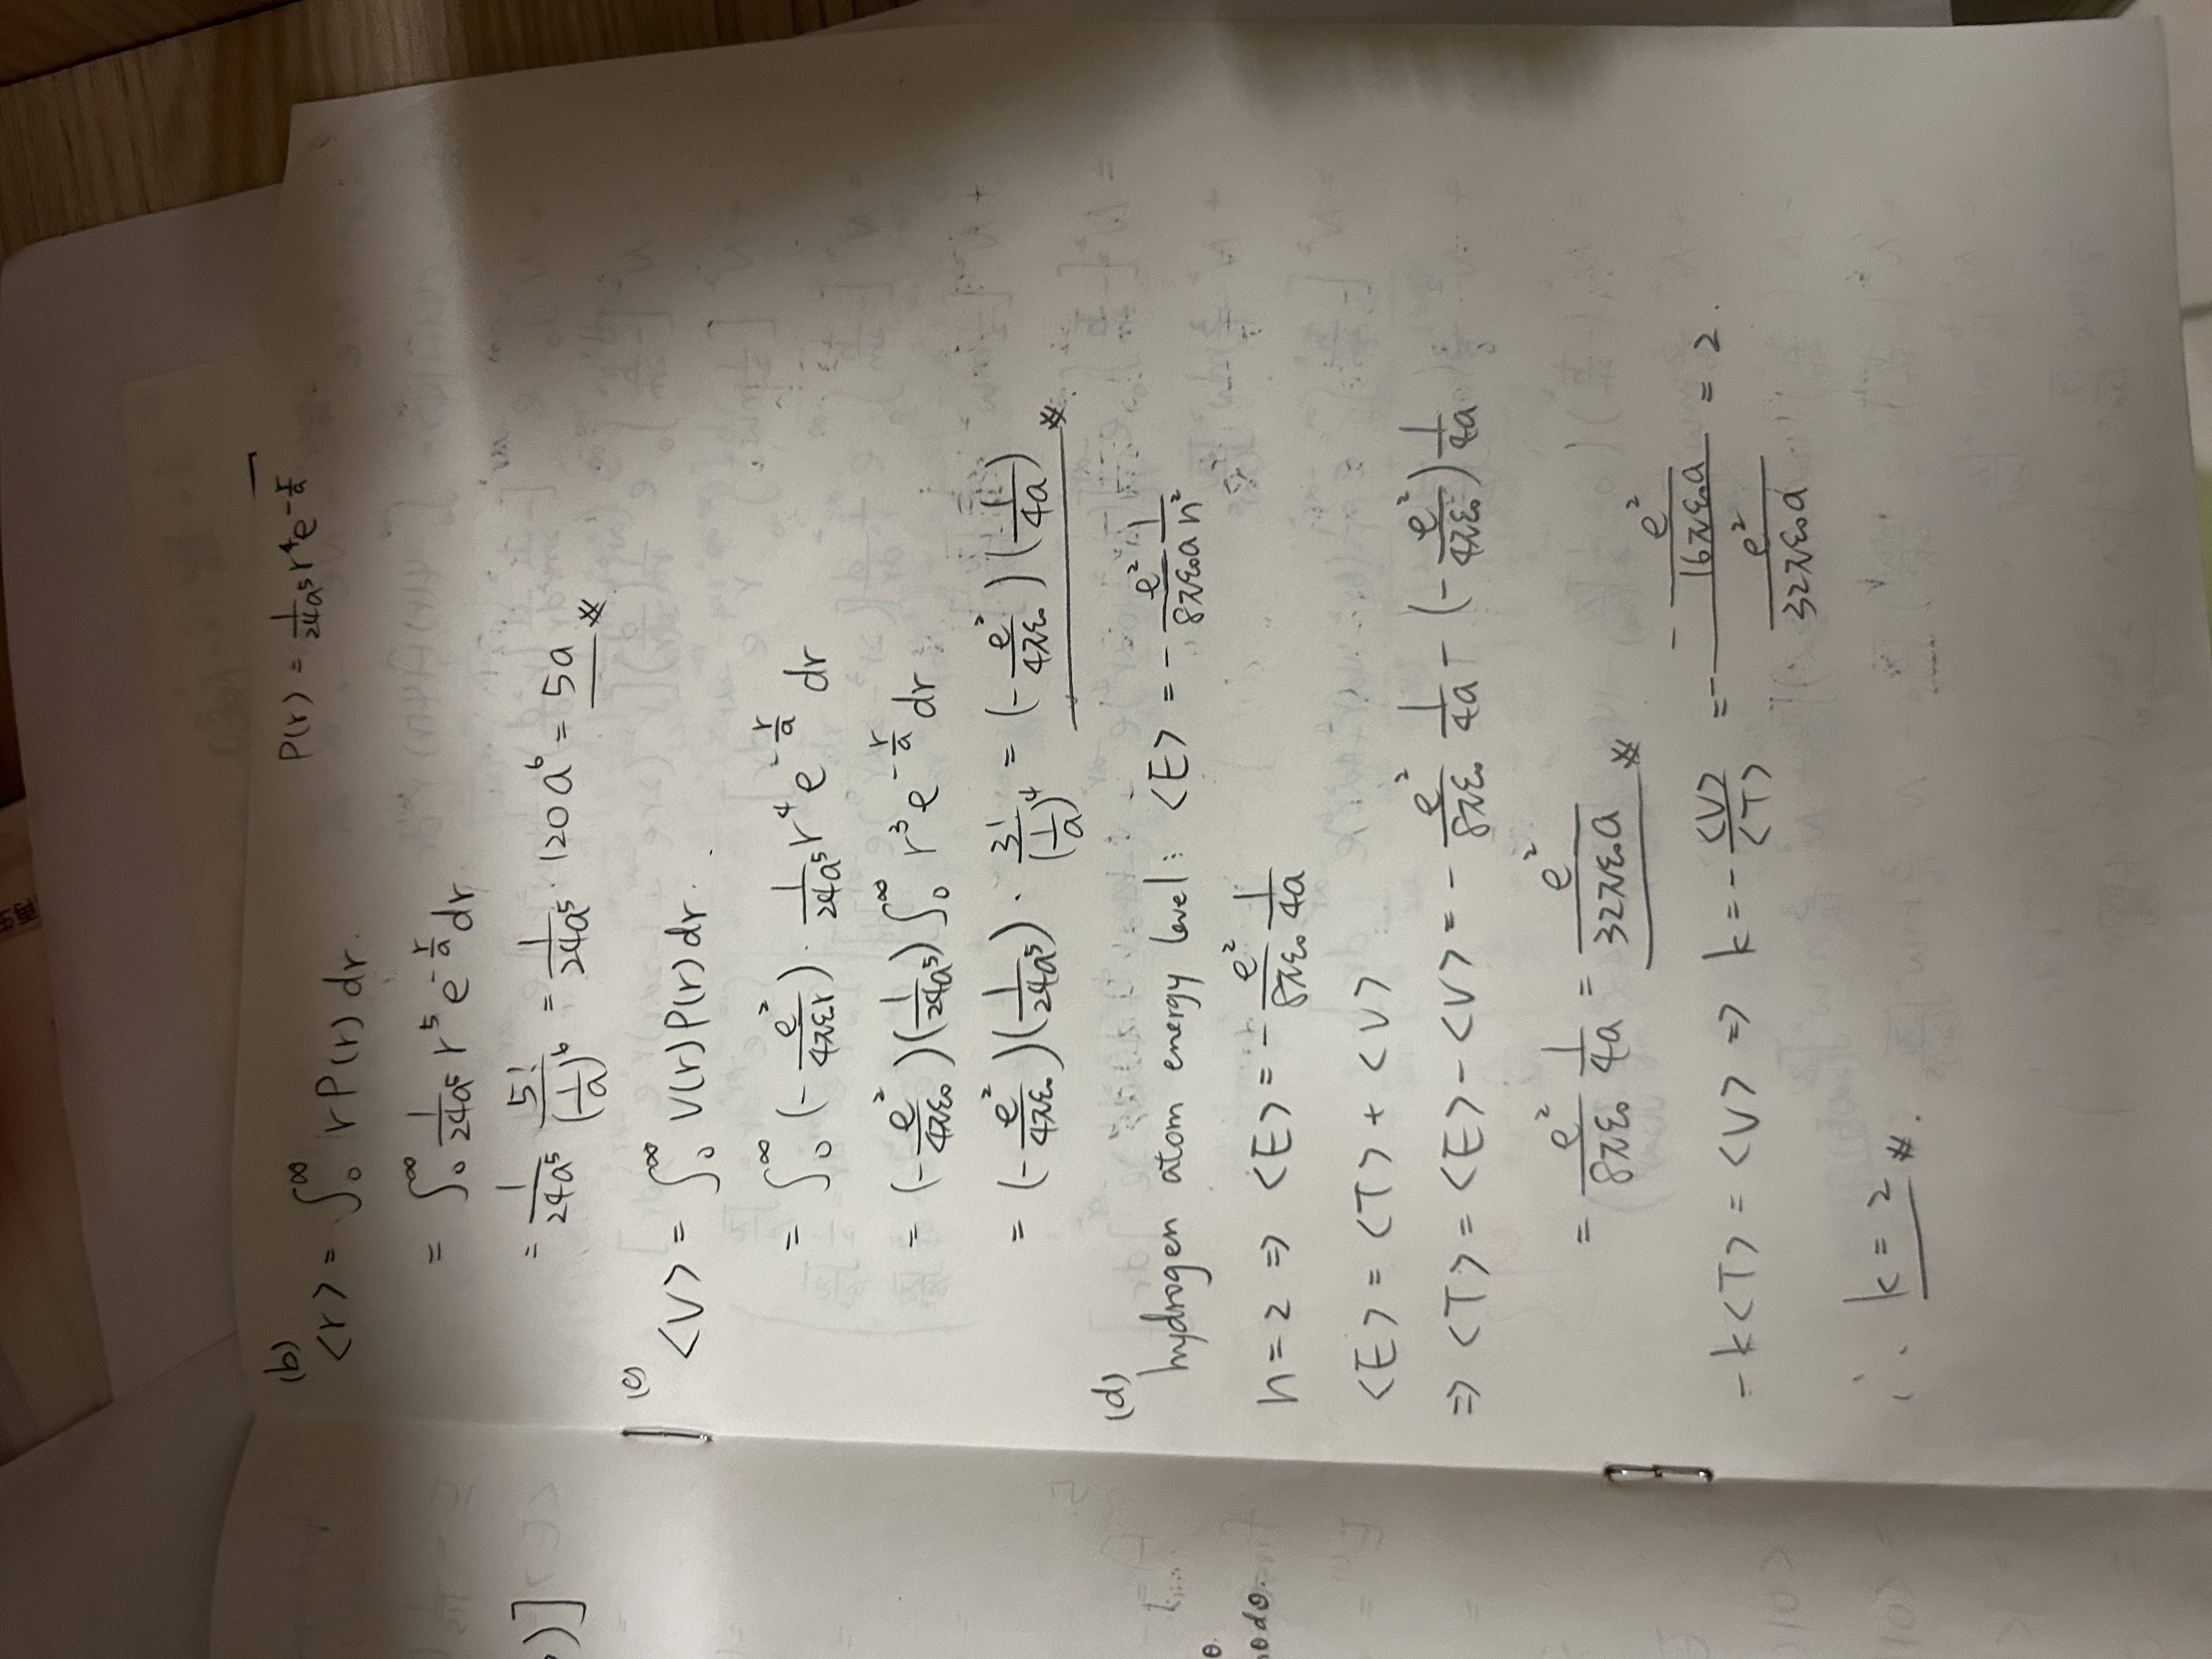 (b)
P(r) = \frac{1}{24a^5} r^4 e^{-\frac{r}{a}}
<r> = ∫_0^∞ r P(r) dr.
= ∫_0^∞ \frac{1}{24a^5} r^5 e^{-\frac{r}{a}} dr
= \frac{1}{24a^5} \frac{5!}{(\frac{1}{a})^6} = \frac{1}{24a^5} · 120a^6 = 5a
(c)
<V> = ∫_0^∞ V(r) P(r) dr.
= ∫_0^∞ (-\frac{e^2}{4πεr}) · \frac{1}{24a^5} r^4 e^{-\frac{r}{a}} dr
= (-\frac{e^2}{4πε_0})(\frac{1}{24a^5}) ∫_0^∞ r^3 e^{-\frac{r}{a}} dr
= (-\frac{e^2}{4πε_0})(\frac{1}{24a^5}) · \frac{3!}{(\frac{1}{a})^4} = (-\frac{e^2}{4πε_0})(\frac{1}{4a})
(d)
hydrogen atom energy level: <E> = -\frac{e^2}{8πε_0a} \frac{1}{n^2}
n = 2 ⇒ <E> = -\frac{e^2}{8πε_0} \frac{1}{4a}
<E> = <T> + <V>
⇒ <T> = <E> - <V> = -\frac{e^2}{8πε_0} \frac{1}{4a} - (-\frac{e^2}{4πε_0}) \frac{1}{4a}
= \frac{e^2}{8πε_0} \frac{1}{4a} = \frac{e^2}{32πε_0a}
-k<T> = <V> ⇒ k = -\frac{<V>}{<T>} = -\frac{-\frac{e^2}{16πε_0a}}{\frac{e^2}{32πε_0a}} = 2.
∴ k = 2